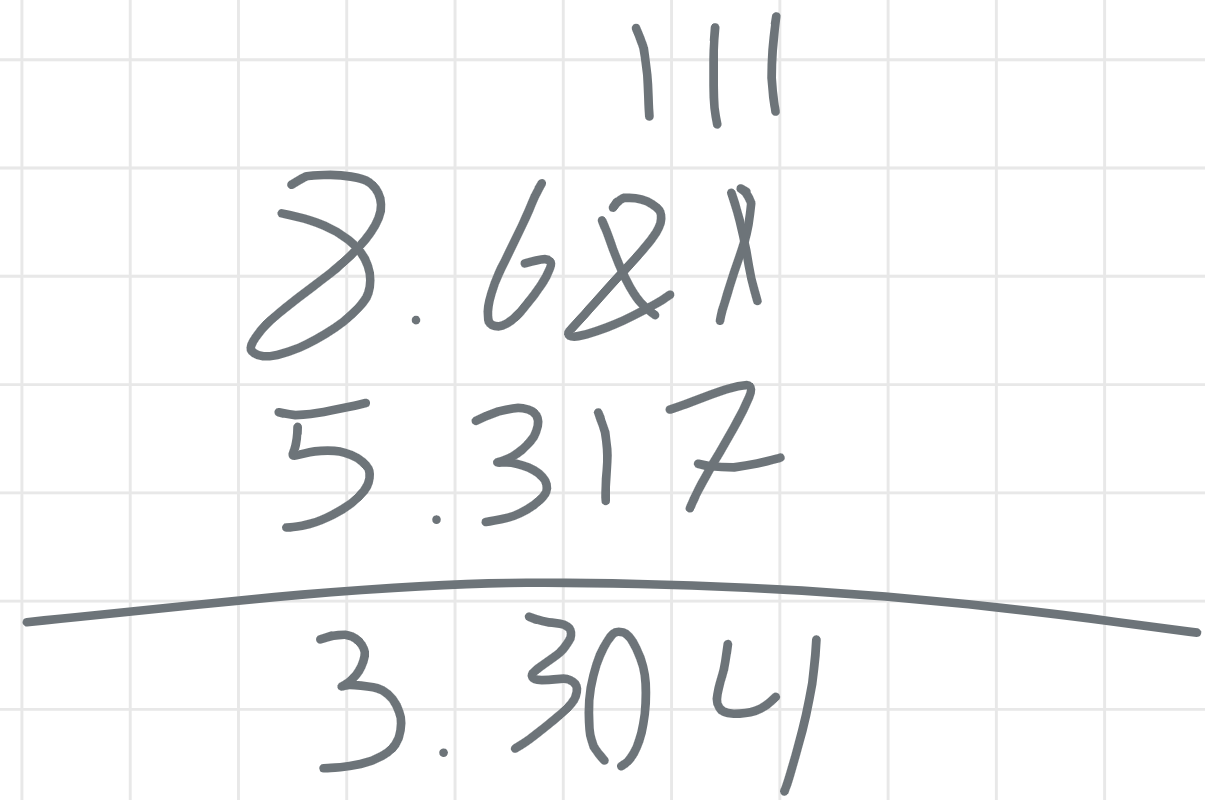 1 11
8.621
5.317
3.304